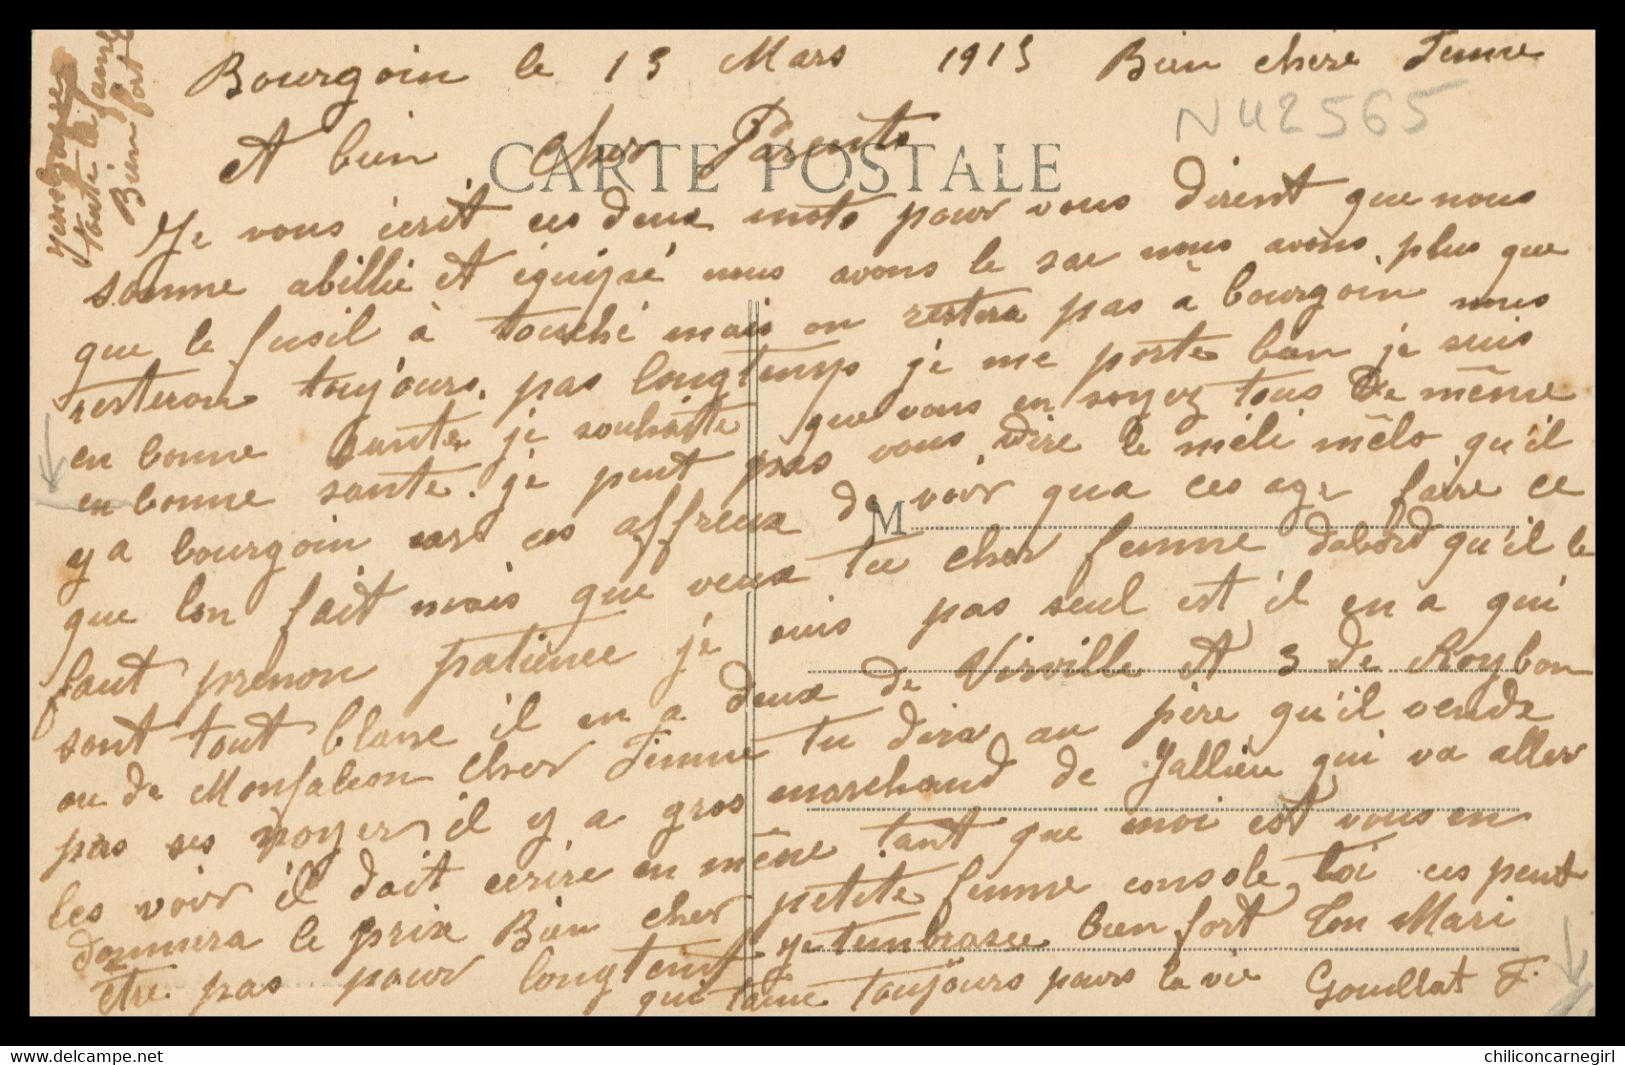 Bourgoin le 13 Mars 1915 Bien chère Femme
N42565
A bien cher Parents
CARTE POSTALE
Je vous écrit ces deux mots pour vous dirent que nous
somme abillié et équipé nous avons le sac nous avons plus que
que le fusil à touché mais on restera pas à bourgoin nous
resteron toujours pas longtemps je me porte bien je suis
en bonne santé je souhaitte que vous en soyez tous de même
en bonne santé. je peut pas vous dire le méli mélo qu'il
y a bourgoin car ces affreux de voir qua ces age faire ce
M
que lon fait mais que veux tu cher femme dabord qu'il le
faut prenon patience je suis pas seul est il en a qui
sont tout blanc il en a deux de Viriville et 3 de Roybon
ou de Monfalcon cher Femme tu dira au père qu'il vende
pas ses noyers il y a gros marchand de Jallieu qui va aller
les voir il doit écrire en même tant que moi est vous en
donnera le prix Bien cher petite femme console toi ces peut
être pas pour longtemp je tembrasse bien fort Ton Mari
qui taime toujours pours la vie Gouillat F.
toute la famille
Bien fort
-- DELCAMPE.NET --
chiliconcarnegirl